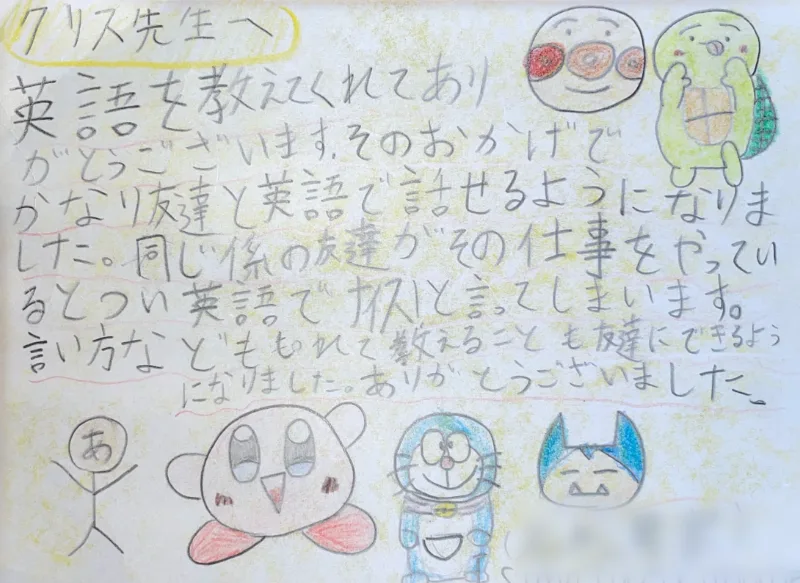 クリス先生へ
英語を教えてくれてあり
がとうございます。そのおかげで
かなり友達と英語で話せるようになりま
した。同じ係の友達がその仕事をやってい
るとつい英語でナイスと言ってしまいます。
言い方などもれて教えることも友達にできるよう
になりました。ありがとうございました。
あ